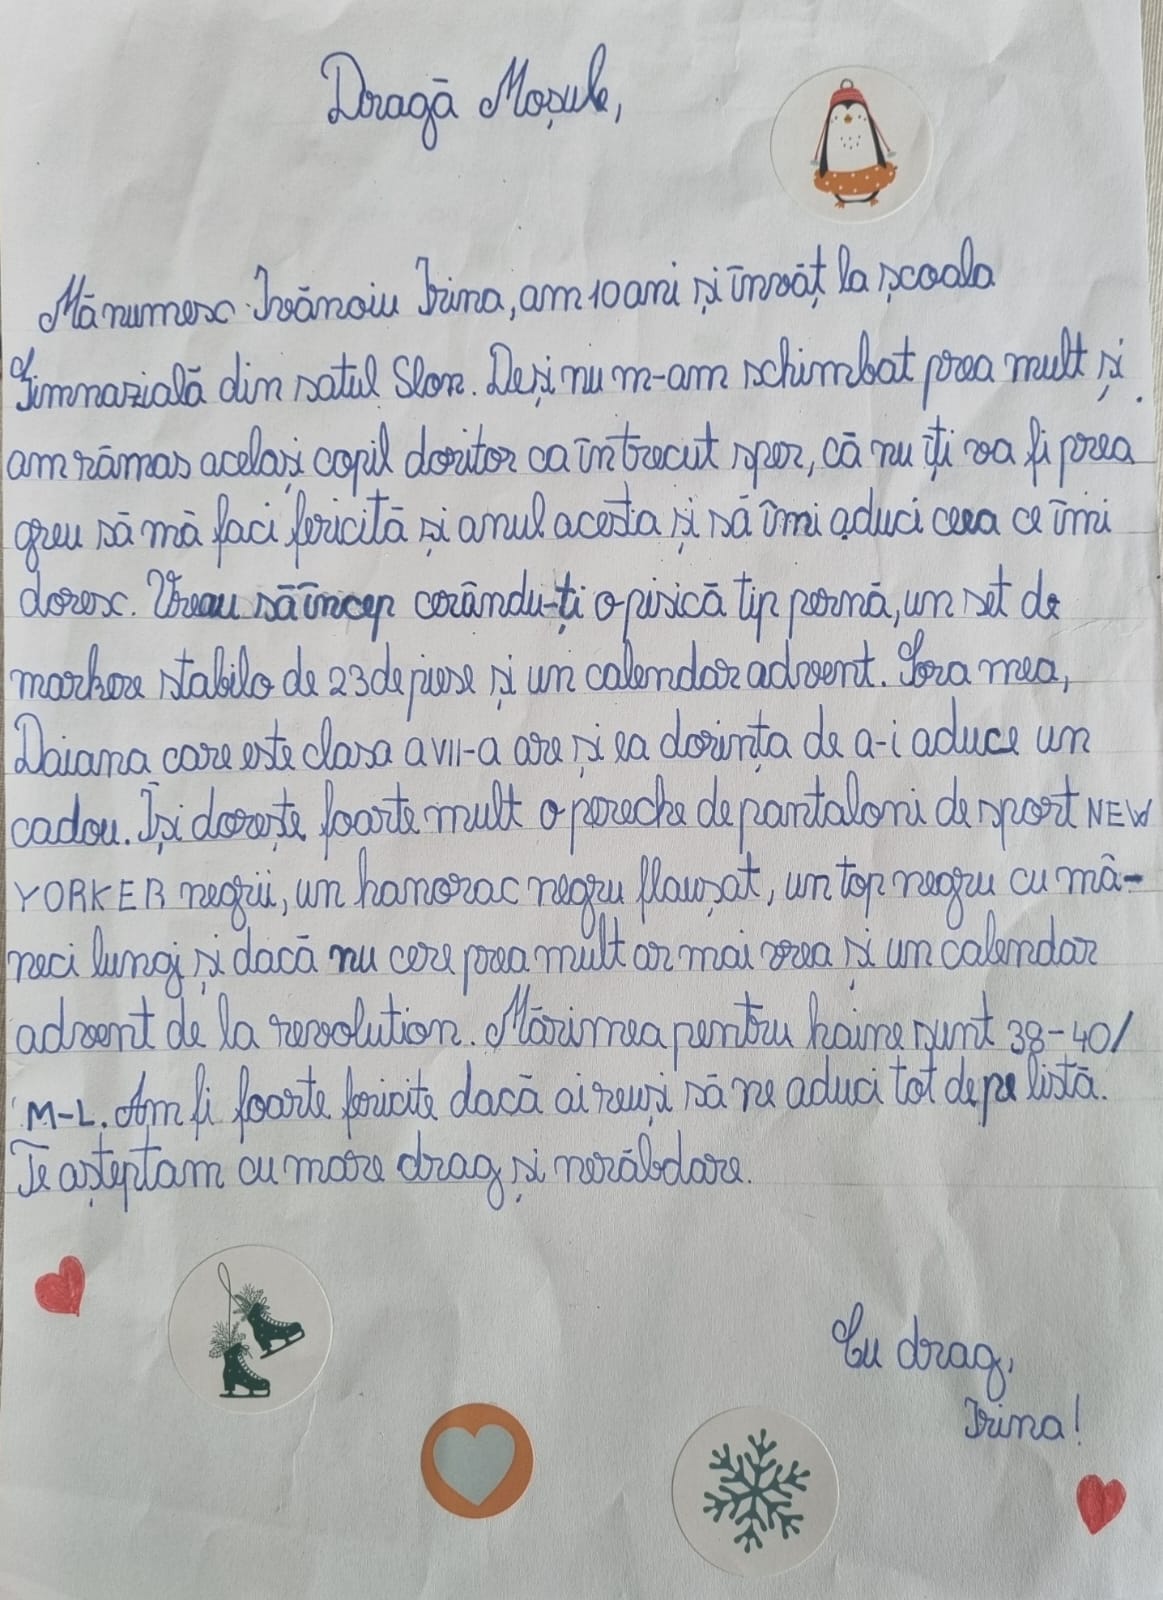 Dragă Moșule,
Mă numesc Ivănoiu Irina, am 10 ani și învăț la școala
Gimnazială din satul Slon. Deși nu m-am schimbat prea mult și
am rămas același copil doritor ca în trecut sper, că nu îți va fi prea
greu să mă faci fericită și anul acesta și să îmi aduci ceea ce îmi
doresc. Vreau să încep cerându-ți o pisică tip pernă, un set de
markere stabilo de 23 de piese și un calendar advent. Sora mea,
Daiana care este clasa a VII-a are și ea dorința de a-i aduce un
cadou. Își dorește foarte mult o pereche de pantaloni de sport NEW
YORKER negrii, un hanorac negru flaușat, un top negru cu mâ-
neci lungi și dacă nu cere prea mult ar mai vrea și un calendar
advent de la revolution. Mărimea pentru haine sunt 38-40/
M-L. Am fi foarte fericite dacă ai reuși să ne aduci tot de pe listă.
Te așteptam cu mare drag și nerăbdare.
Cu drag,
Irina!